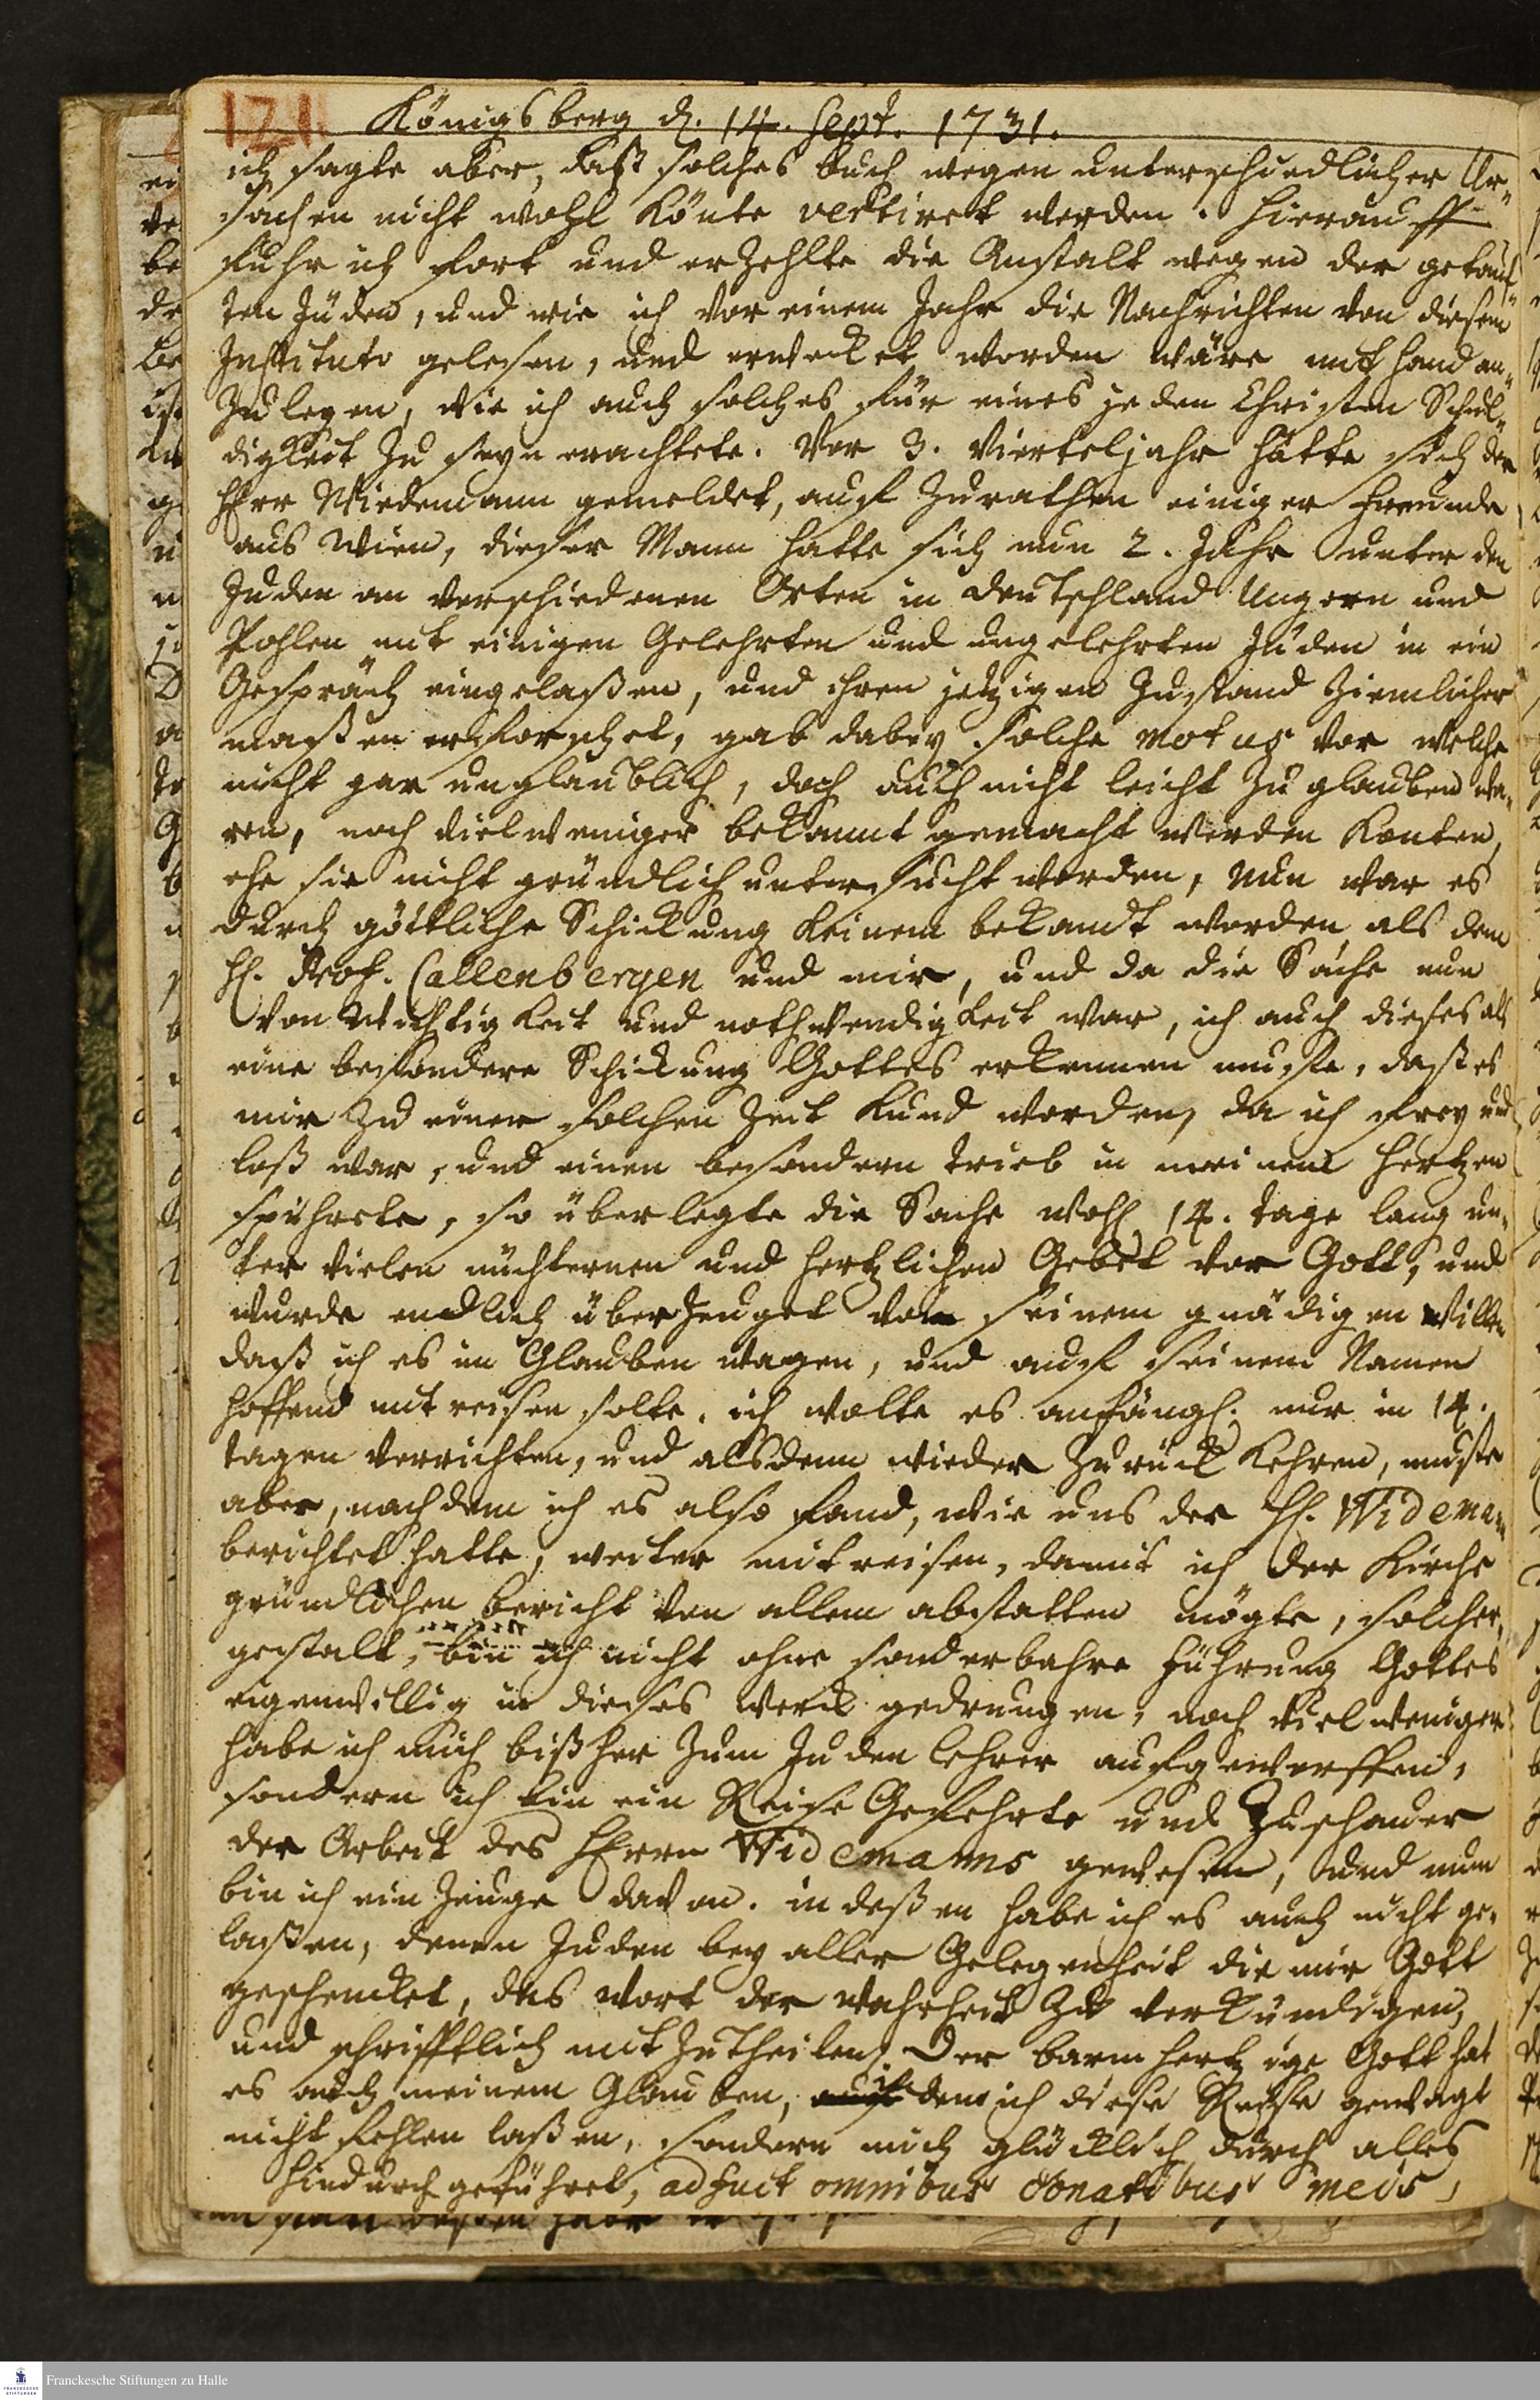 121
Königsberg d. 14. Sept. 1731.
ich sagte aber, daß solches buch wegen unterschiedlicher Ur„
sachen nicht wohl könte vertiret werden. hierauff
fuhr ich fort und erzehlte die Anstalt wegen der getauf„
ten Juden, und wie ich vor einem Jahr die Nachrichten von diesem
Instituto gelesen, und erwecket worden wäre mit hand an„
zulegen, wie ich auch solches für eines jeden Christen Schul„
digkeit zu seyn erachtete. Vor 3. Vierteljahr hätte sich der
Herr Wiedemann gemeldet, auf zurathen einiger Freunde
aus Wien, dieser Mann hatte sich nun 2. Jahr unter den
Juden an verschiedenen Orten in deutschland Ungern und
Pohlen mit einigen Gelehrten und ungelehrten Juden in ein
Gespräch eingelaßen, und ihren jetzigen Zustand ziemlicher
maßen erforschet, gab dabey solche motus vor welche
nicht gar unglaublich, doch auch nicht leicht zu glauben wa„
ren, noch vielweniger bekannt gemacht werden konten,
ehe sie nicht gründlich untersucht worden, Nun war es
durch göttliche Schickung keinem bekandt worden als dem
H. Prof. Callenbergen und mir, und da die Sache nun
von Wichtigkeit und nothwendigkeit war, ich auch dieses als
eine besondere Schickung Gottes erkennen muste, daß es
mir zu einer solchen Zeit kund worden, da ich frey und
loß war, und einen besondern trieb in meinem Hertzen
spührete, so überlegte die Sache wohl 14. tage lang un„
ter vielen nüchternen und hertzlichen Gebet vor Gott, und
wurde endlich überzeuget von seinem gnädigen Willen
daß ich es im Glauben wagen, und auf seinem Namen
hoffend mit reisen solte. ich wolte es anfängl. nur in 14.
tagen verrichten, und alsdenn wieder zurück kehren, muste
aber, nach dem ich es also fand, wie uns der H. Widemann
berichtet hatte, weiter mitreisen, damit ich der Kirche
gründlichen bericht von allem abstatten mögte, solcher„
gestalt, bin ich nicht ohne sonderbahre führung Gottes
eigenwillig in dieses werck gedrungen, noch vielweniger
habe ich mich bißher zum Juden lehrer aufgeworffen,
sondern ich bin ein Reise Gefehrte und Zuschauer
der Arbeit des Herrn Widemanns gewesen, und nun
bin ich ein Zeuge davon. in deßen habe ich es auch nicht ge„
laßen, denen Juden bey aller Gelegenheit die mir Gott
geschencket, das wort der wahrheit zu verkündigen,
und schrifftlich mit zutheilen. Der barmhertzige Gott hat
es auch meinem Glauben, in dem ich diese Reise gewagt
nicht fehlen laßen, sondern mich glücklich durch alles
hindurch geführet, adfuit omnibus conatibus meis,
Franckesche Stiftungen zu Halle